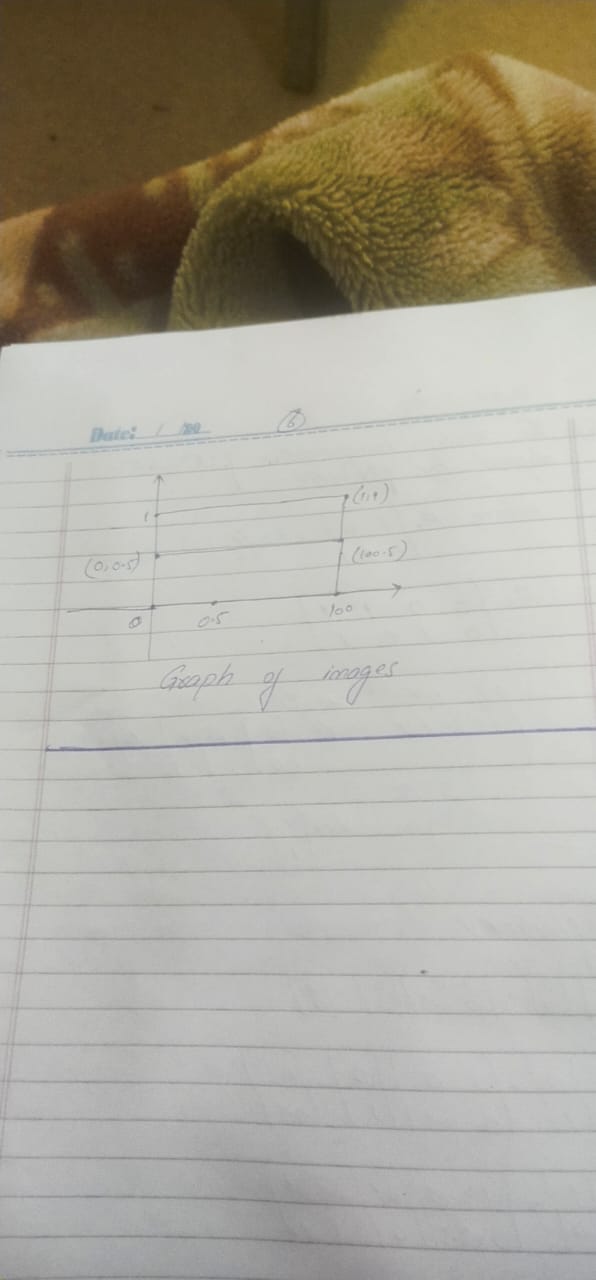 Date: / /20
6
1
(1,1)
(0,0.5)
(100.5)
0
0.5
100
Graph of images